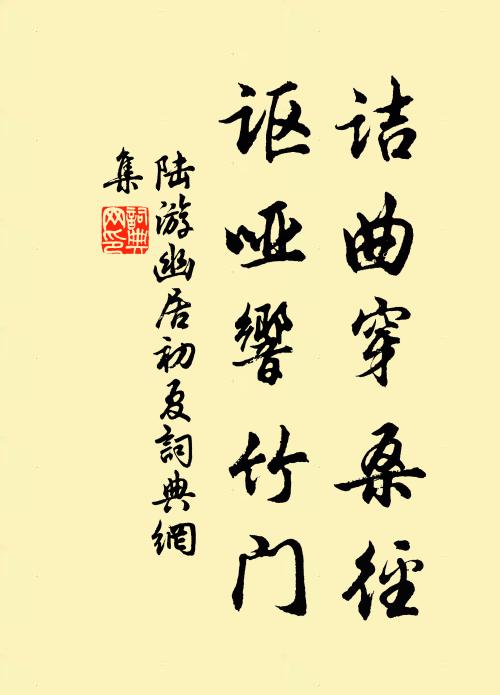 诘曲穿桑径
讴哑響竹门
陆游幽居初夏詞典網
集
詞典
网印